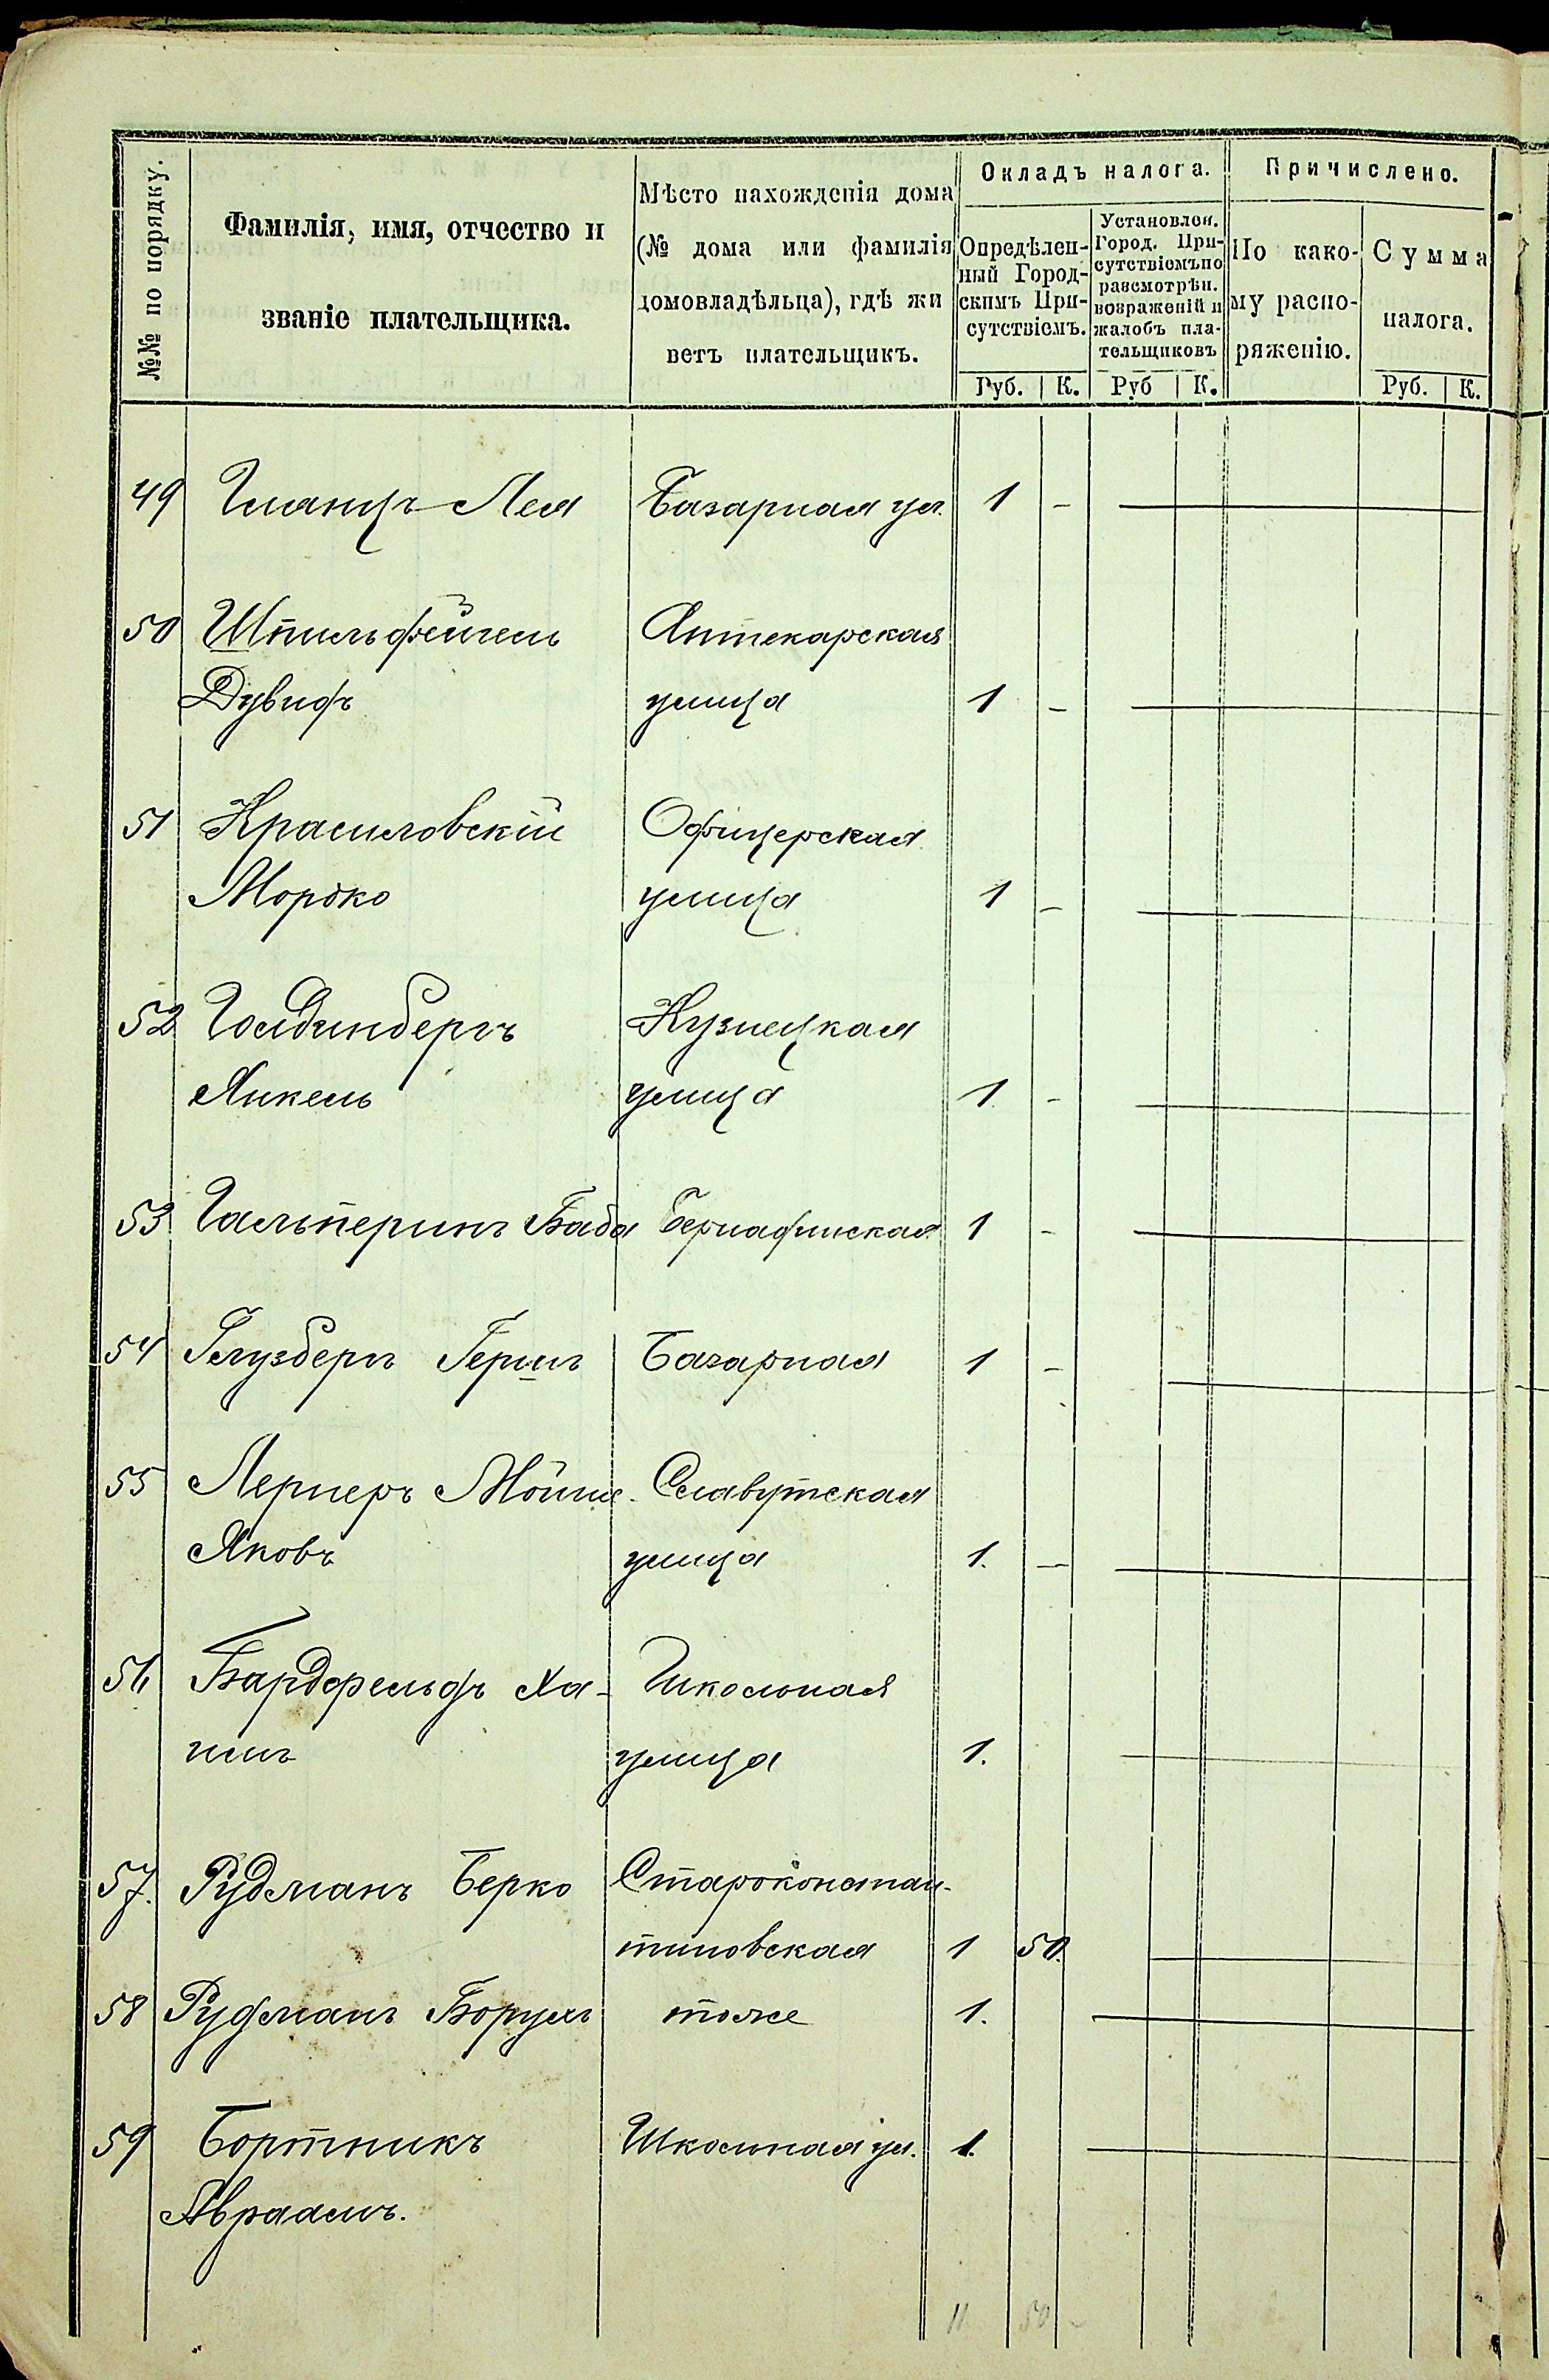 №№ по порядку.
Фамилія, имя, отчество и
званіе плательщика.
Мѣсто нахожденія дома
(№ дома или фамилія
домовладѣльца), гдѣ жи
ветъ плательщикъ.
Окладъ налога.
Опредѣлен-
ный Город-
скимъ При-
сутствіемъ.
Установлен.
Город. При-
сутствіемъ по
разсмотрѣн.
возраженій и
жалобъ пла-
тельщиковъ
Причислено.
По како-
му распо-
ряженію.
Сумма
налога.
Руб. К. Руб К. Руб. К.
49 Гланцъ Лея Базарная ул. 1 -
50 Шпильфейгель Аптекарская
Дувидъ улица 1 -
51 Красиловскій Офицерская
Мордко улица 1 -
52 Голдинбергъ Кузнецкая
Янкель улица 1 -
53 Гальперинъ Баба Бернадинская 1 -
54 Глузберг Герши Базарная 1 -
55 Лернеръ Мойше- Славутская
Яковъ улица 1. -
56 Бардфельдъ Ха- Школьная
имъ улица 1.
57. Рудманъ Берко Староконстан-
тиновская 1 50.
58 Рудманъ Борухъ тоже 1.
59 Бортникъ Школьная ул. 1.
Авраамъ.
11 50 -